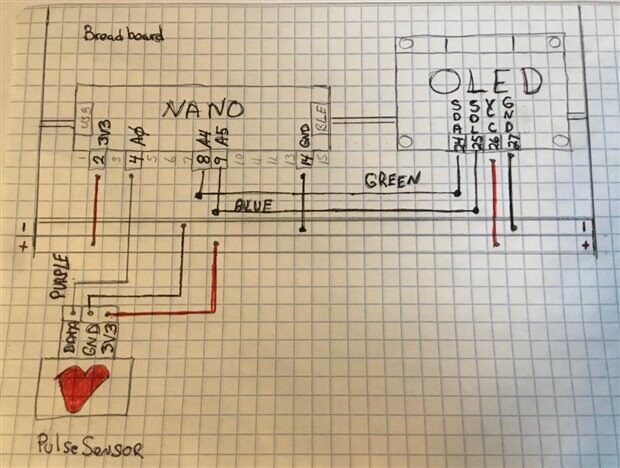 Breadboard
OLED
USB
NANO
BLE
3V3
A0
A4
A5
GND
SDA
SCL
VCC
GND
1 2 3 4 5 6 7 8 9 10 11 12 13 14 15
24 25 26 27
GREEN
BLUE
-
+
-
+
PURPLE
DATA
GND
3V3
Pulse Sensor